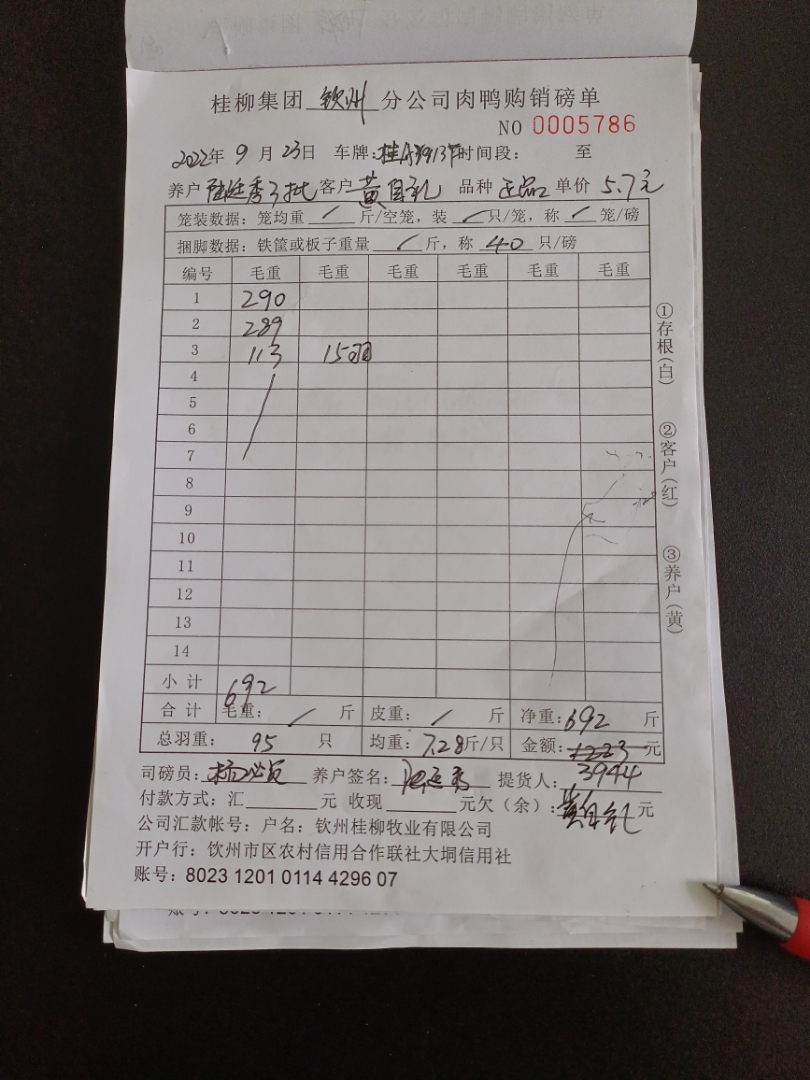 桂柳集团 钦州 分公司肉鸭购销磅单
NO 0005786
2022年 9 月 23日 车牌: 时间段: 至
养户 客户 黄 品种 正品 单价 5.7元
笼装数据: 笼均重 / 斤/空笼, 装 / 只/笼, 称 / 笼/磅
捆脚数据: 铁筐或板子重量 / 斤, 称 40 只/磅
编号 毛重 毛重 毛重 毛重 毛重 毛重
1 290
2 289
3 113 15羽
4
5
6
7
8
9
10
11
12
13
14
小计 692
合计 毛重: / 斤 皮重: / 斤 净重: 692 斤
总羽重: 95 只 均重: 7.28斤/只 金额: 元
3944
司磅员: 养户签名: 提货人:
付款方式: 汇 元 收现 元欠(余): 元
公司汇款帐号: 户名: 钦州桂柳牧业有限公司
开户行: 钦州市区农村信用合作联社大垌信用社
账号: 8023 1201 0114 4296 07
①存根(白)
②客户(红)
③养户(黄)